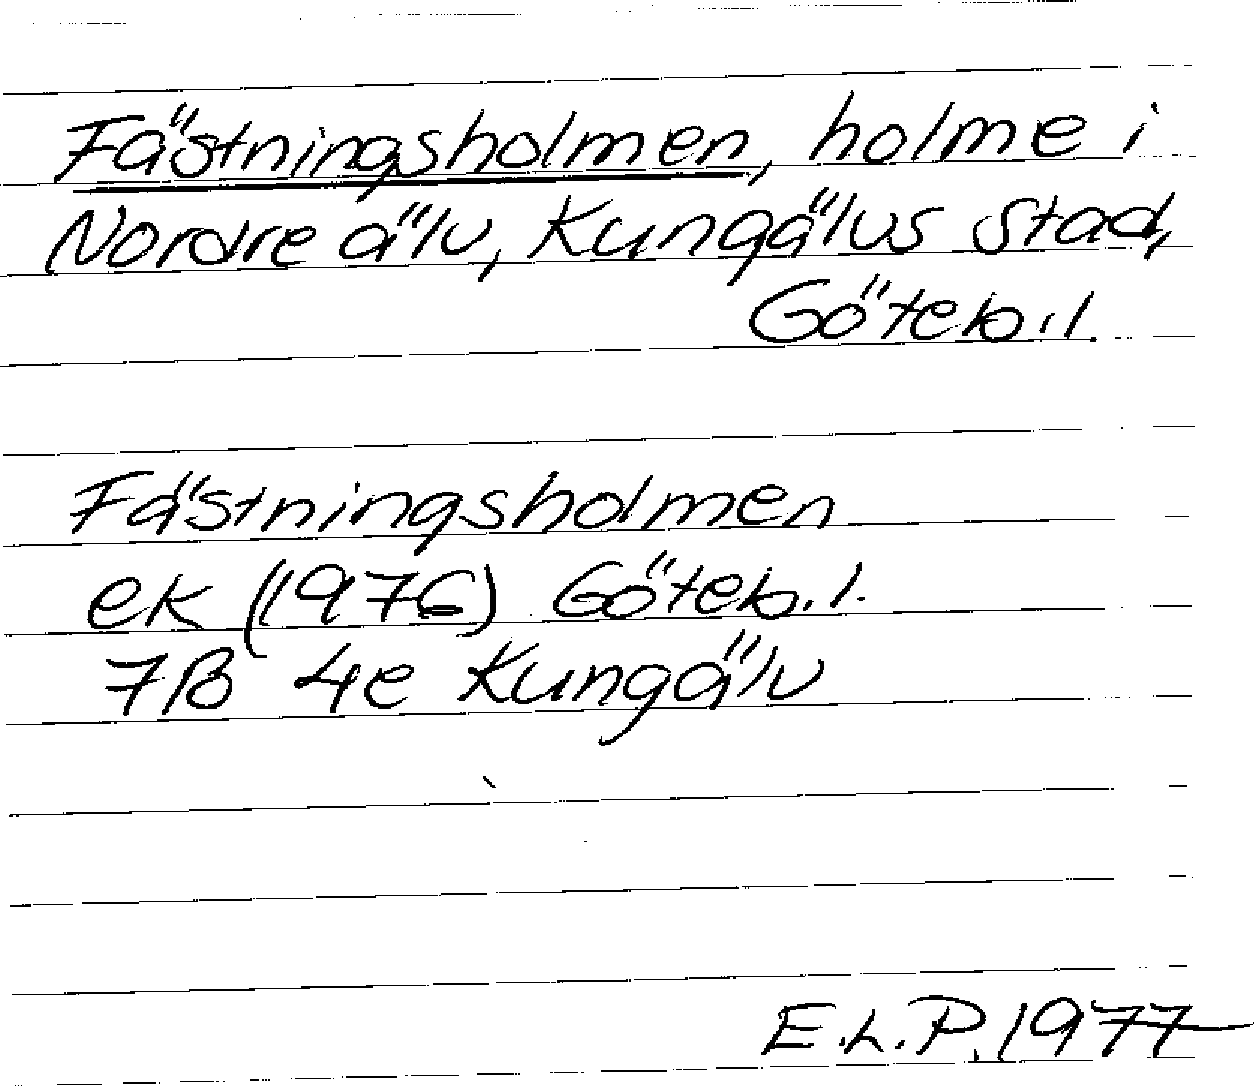 Fästningsholmen, holme i
Nordre älv, Kungälvs stad,
Göteb.l.
Fästningsholmen
ek (1976) Göteb.l.
7B 4e Kungälv
E.L.P. 1977